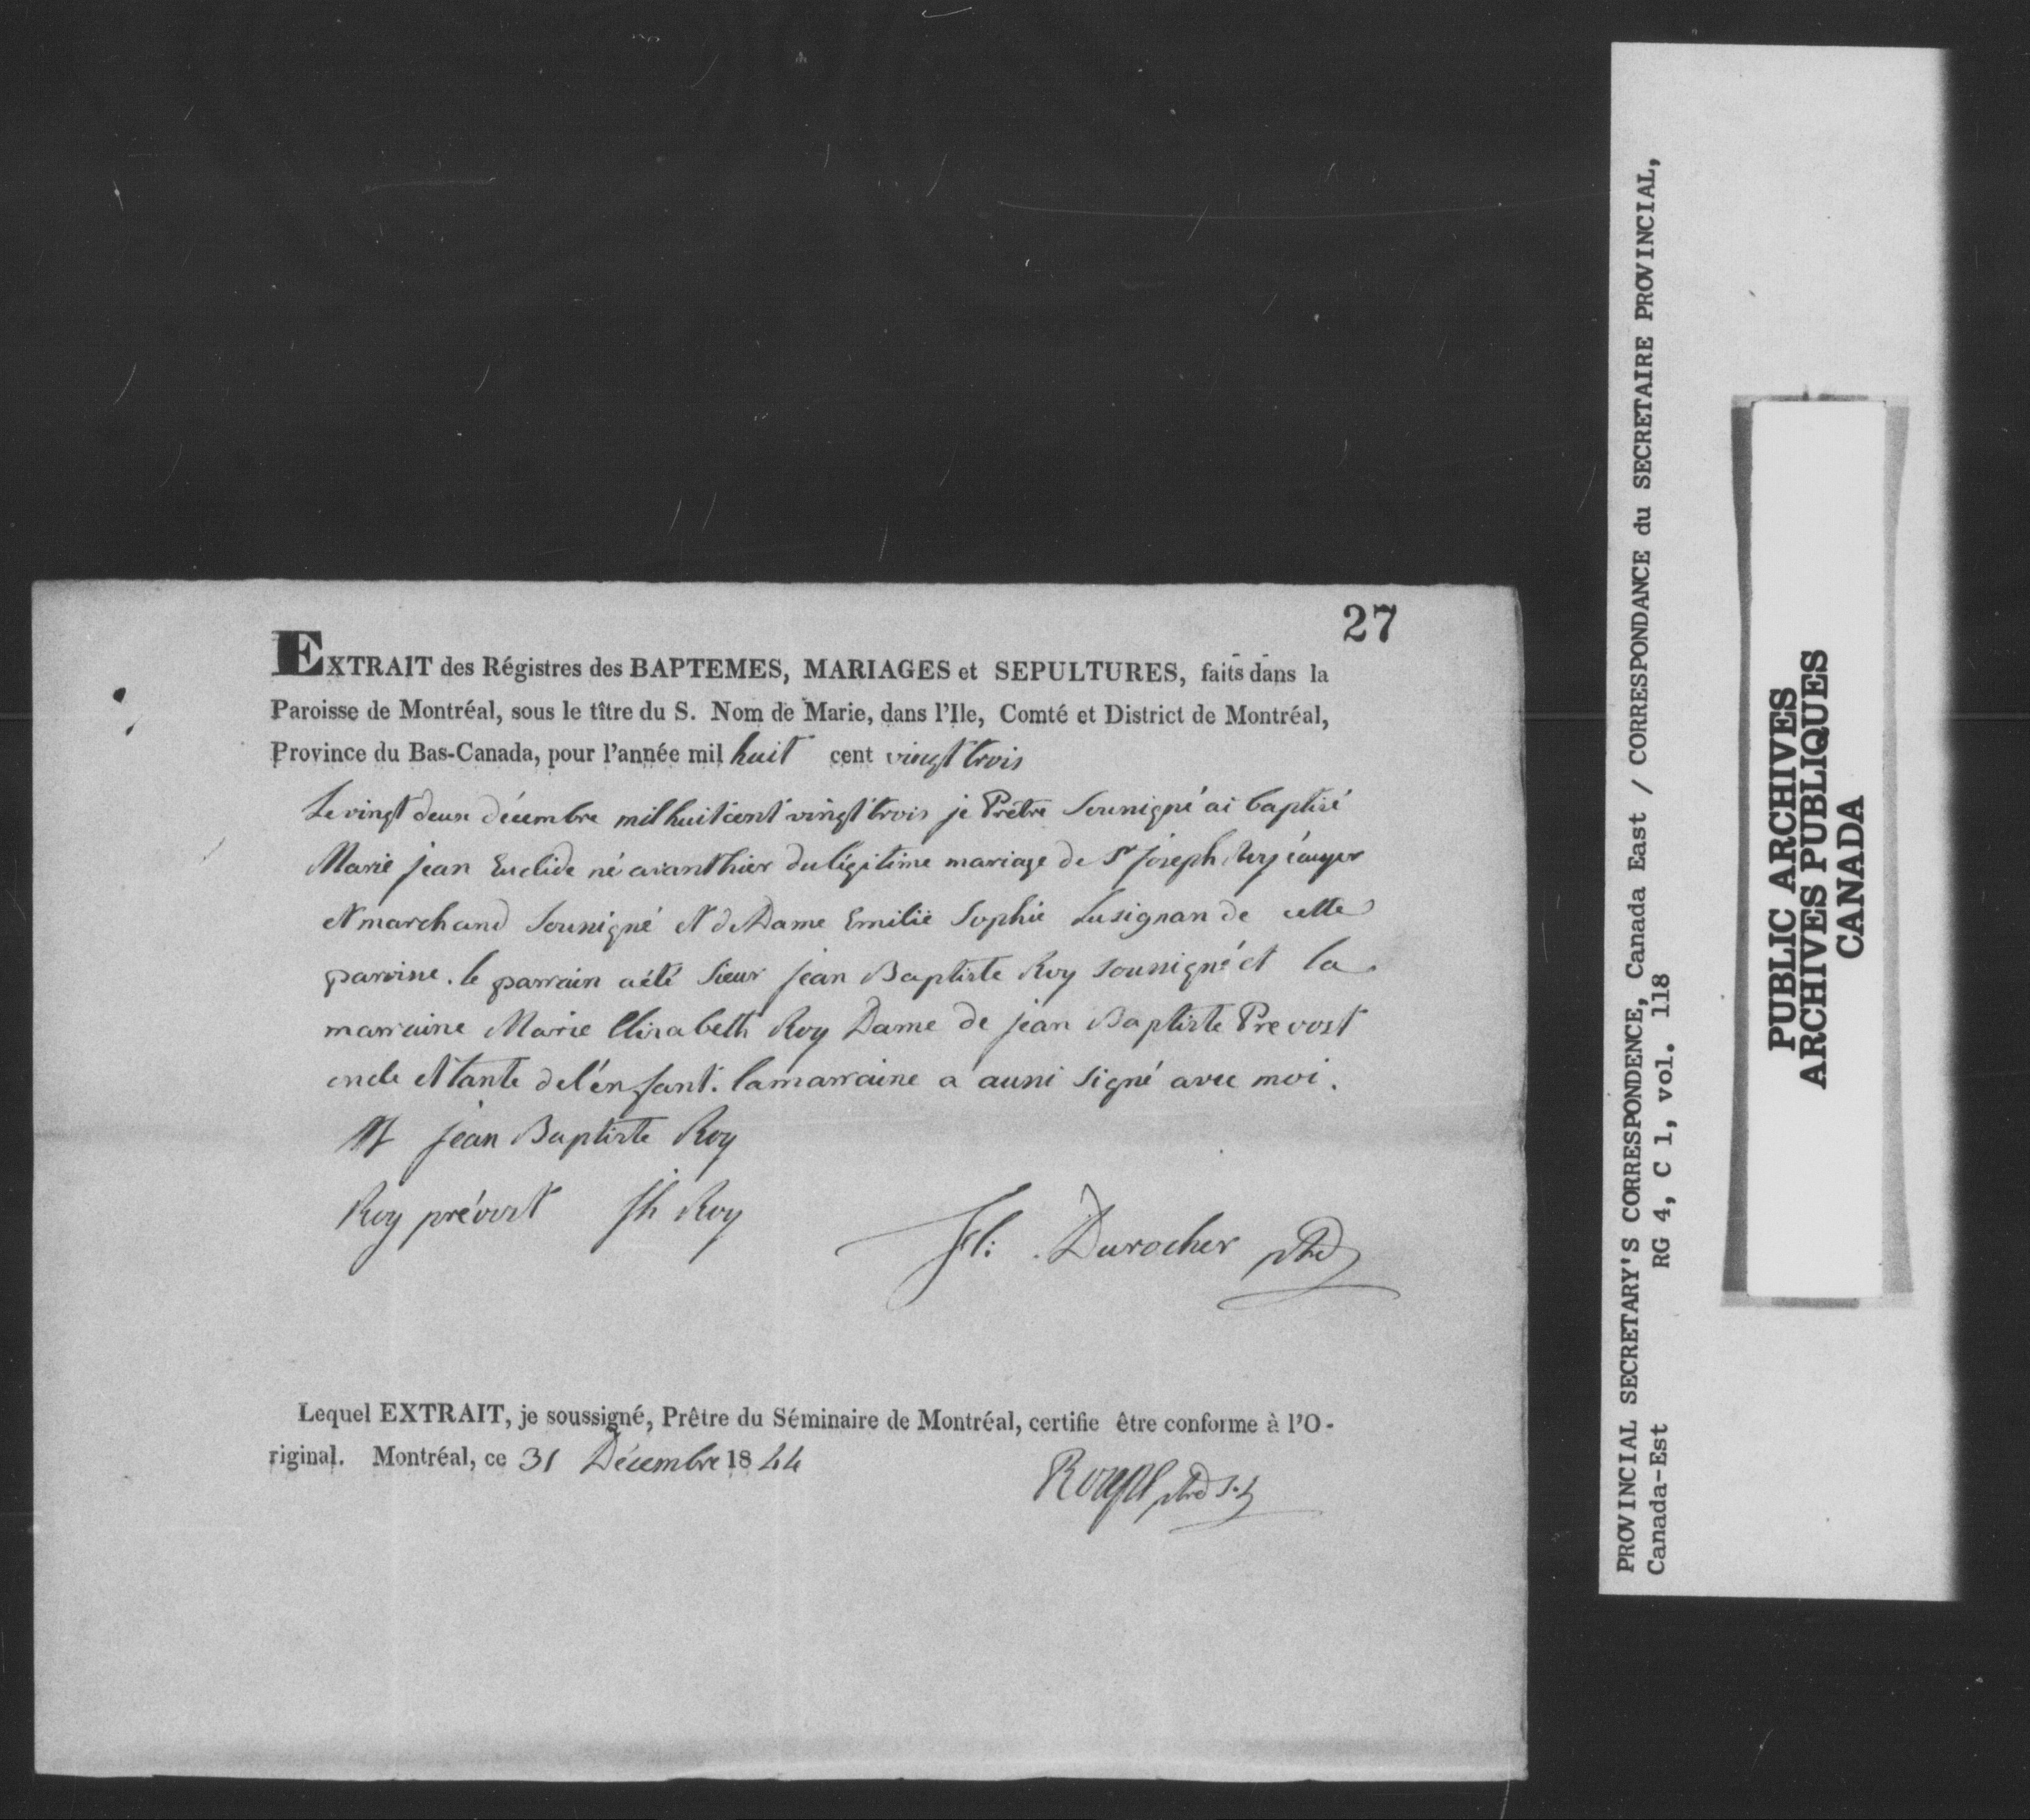 27
EXTRAIT des Régistres des BAPTEMES, MARIAGES et SEPULTURES, faits dans la
Paroisse de Montréal, sous le tître du S. Nom de Marie, dans l'Ile, Comté et District de Montréal,
Province du Bas-Canada, pour l'année mil huit cent vingt trois
Le vingt deux décembre mil huit cent vingt trois je Prêtre Soussigné ai baptisé
Marie jean Euclide né avant hier du légitime mariage de Sr joseph Roy écuyer
et marchand Soussigné et de Dame Emilie Sophie Lusignan de cette
paroisse. le parrain a été Sieur jean Baptiste Roy soussigné et la
marraine Marie Elisabeth Roy Dame de jean Baptiste Prevost
oncle et tante de l'énfant. la marraine a aussi Signé avec moi.
jean Baptiste Roy
Roy prévost Jh Roy
Fl: Durocher ptre
Lequel EXTRAIT, je soussigné, Prêtre du Séminaire de Montréal, certifie être conforme à l'O-
riginal. Montréal, ce 31 Décembre 1844
ptre
PROVINCIAL SECRETARY'S CORRESPONDENCE, Canada East / CORRESPONDANCE du SECRETAIRE PROVINCIAL,
Canada-Est RG 4, C 1, vol. 118
PUBLIC ARCHIVES
ARCHIVES PUBLIQUES
CANADA